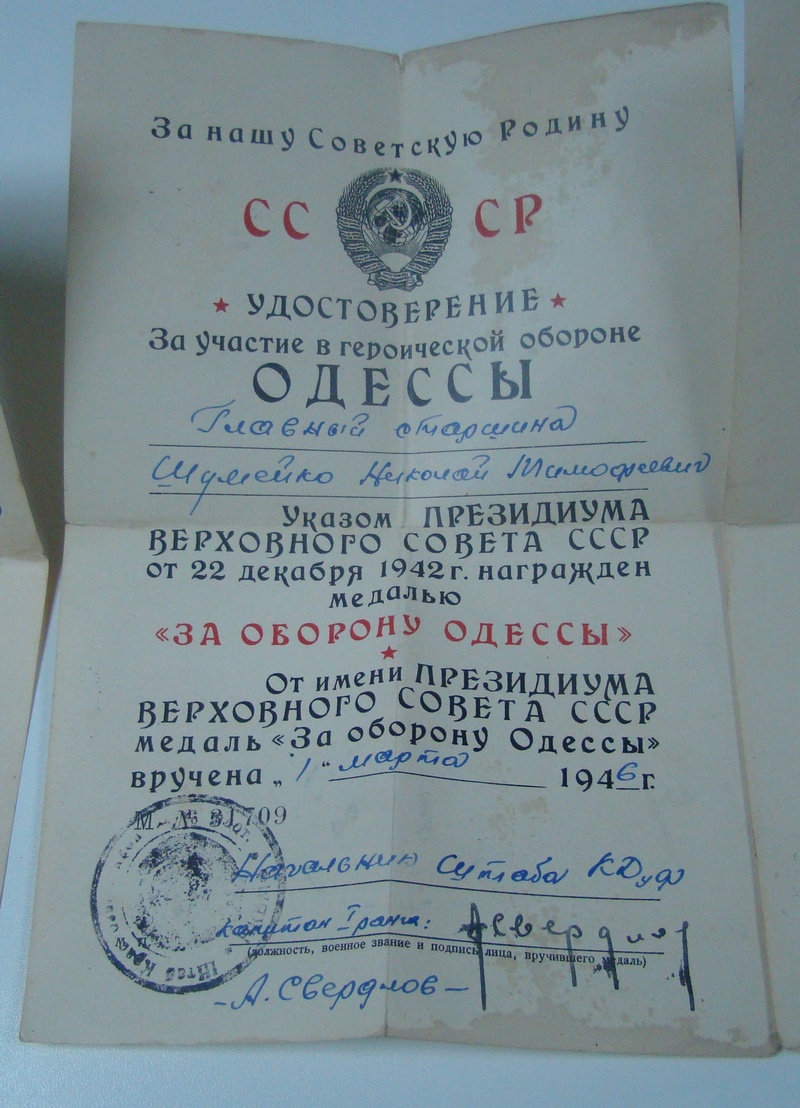 За нашу Советскую Родину
СССР
УДОСТОВЕРЕНИЕ
За участие в героической обороне
ОДЕССЫ
Главный старшина
Шумейко Николай Тимофеевич
Указом ПРЕЗИДИУМА
ВЕРХОВНОГО СОВЕТА СССР
от 22 декабря 1942 г. награжден
медалью
«ЗА ОБОРОНУ ОДЕССЫ»
От имени ПРЕЗИДИУМА
ВЕРХОВНОГО СОВЕТА СССР
медаль «За оборону Одессы»
вручена „1“ марта 1946 г.
М № 31709
Начальник Штаба КДуф
капитан I ранга: А Свердлов
(должность, военное звание и подпись лица, вручившего медаль)
-А. Свердлов-
Штаб